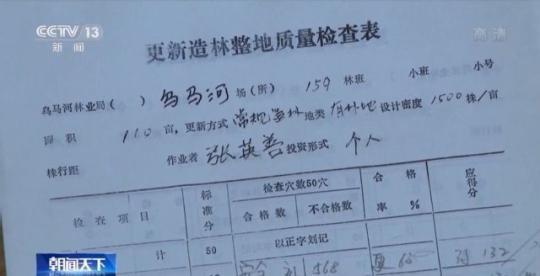 CCTV 13
新闻
高清
更新造林整地质量检查表
乌马河林业局( ) 乌马河 场(所) 159 林班 小班 小号
面积 110 亩, 更新方式 常规造林 地类 有林地 设计密度 1500 株/亩
株行距 作业者 张英善 投资形式 个人
检查项目 标准分 检查穴数50穴 合格率% 应得分
合格数 不合格数
计 50 以正字划记
朝闻天下